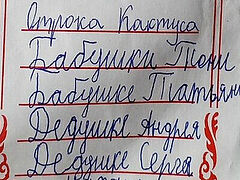 Отрока Кактуса
Бабушки Тони
Бабушке Татьян
Дедушке Андрея
Дедушке Серга